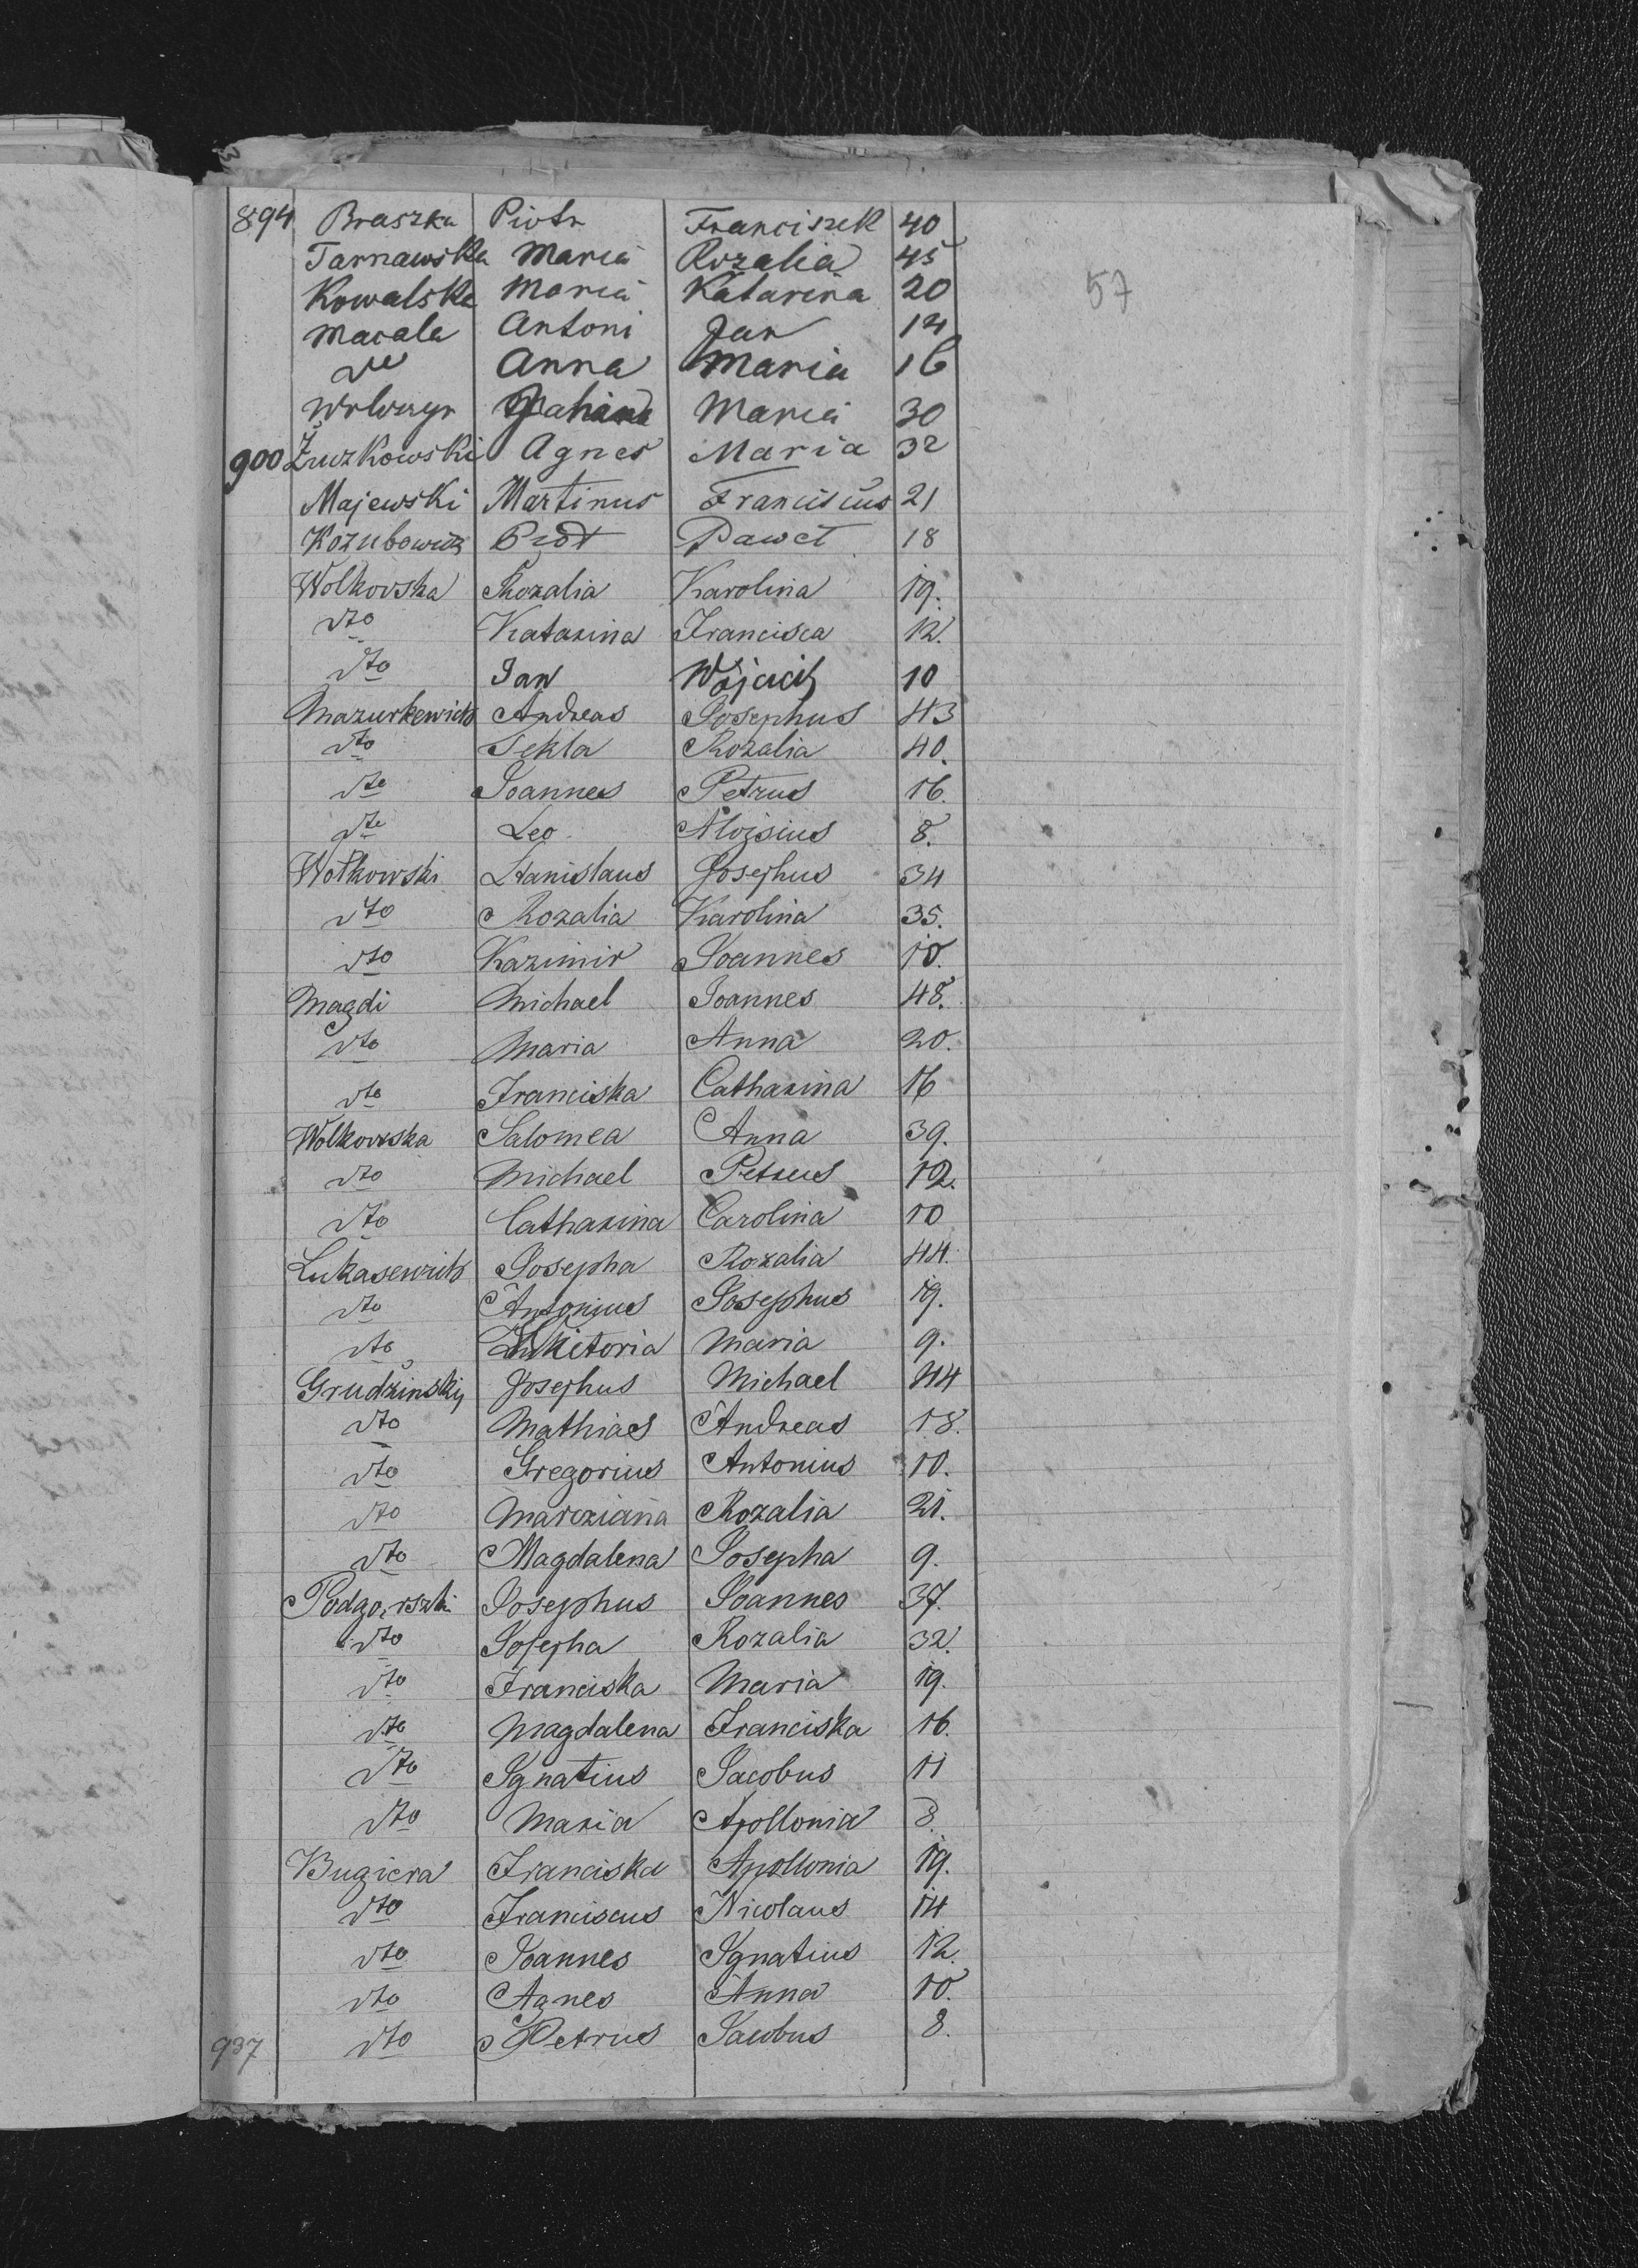 894 Braszka Piotr Franciszek 40
Tarnawska Maria Rozalia 45
57
Kowalska Maria Katarina 20
Macala Antoni Jan 14
dto Anna Maria 16
Maria 30
900 Żuczkowski Agnes Maria 32
Majewski Martinus Franciscus 21
Kozubowicz Piotr Paweł 18
Wolkovska Rozalia Karolina 19.
dto Katarina Francisca 12.
dto Jan Wojcich 10
Mazurkewicz Andreas Josephus 43
dto Tekla Rozalia 40.
dto Joannes Petrus 16.
dto Leo Aloisius 8.
Wolkowski Stanislaus Josephus 34
dto Rozalia Karolina 35.
dto Kazimir Joannes 10.
Magdi Michael Joannes 48.
dto Maria Anna 20.
dto Franciska Catharina 16
Wolkovska Salomea Anna 39.
dto Michael Petrus 12.
dto Catharina Carolina 10
Lukasewicz Josepha Rozalia 44.
dto Antonius Josephus 19.
dto Wiktoria Maria 9.
Grudzinskij Josephus Michael 44
dto Mathias Andreas 18.
dto Gregorius Antonius 10.
dto Marcziana Rozalia 21.
dto Magdalena Josepha 9.
Podgorszki Josephus Joannes 37.
dto Josepha Rozalia 32.
dto Franciska Maria 19.
dto Magdalena Franciska 16.
dto Ignatius Jacobus 11
dto Maria Apollonia 8.
Bugiera Franciska Apollonia 19.
dto Franciscus Nicolaus 14
dto Joannes Ignatius 12.
dto Agnes Anna 10.
937 dto Petrus Jacobus 8.